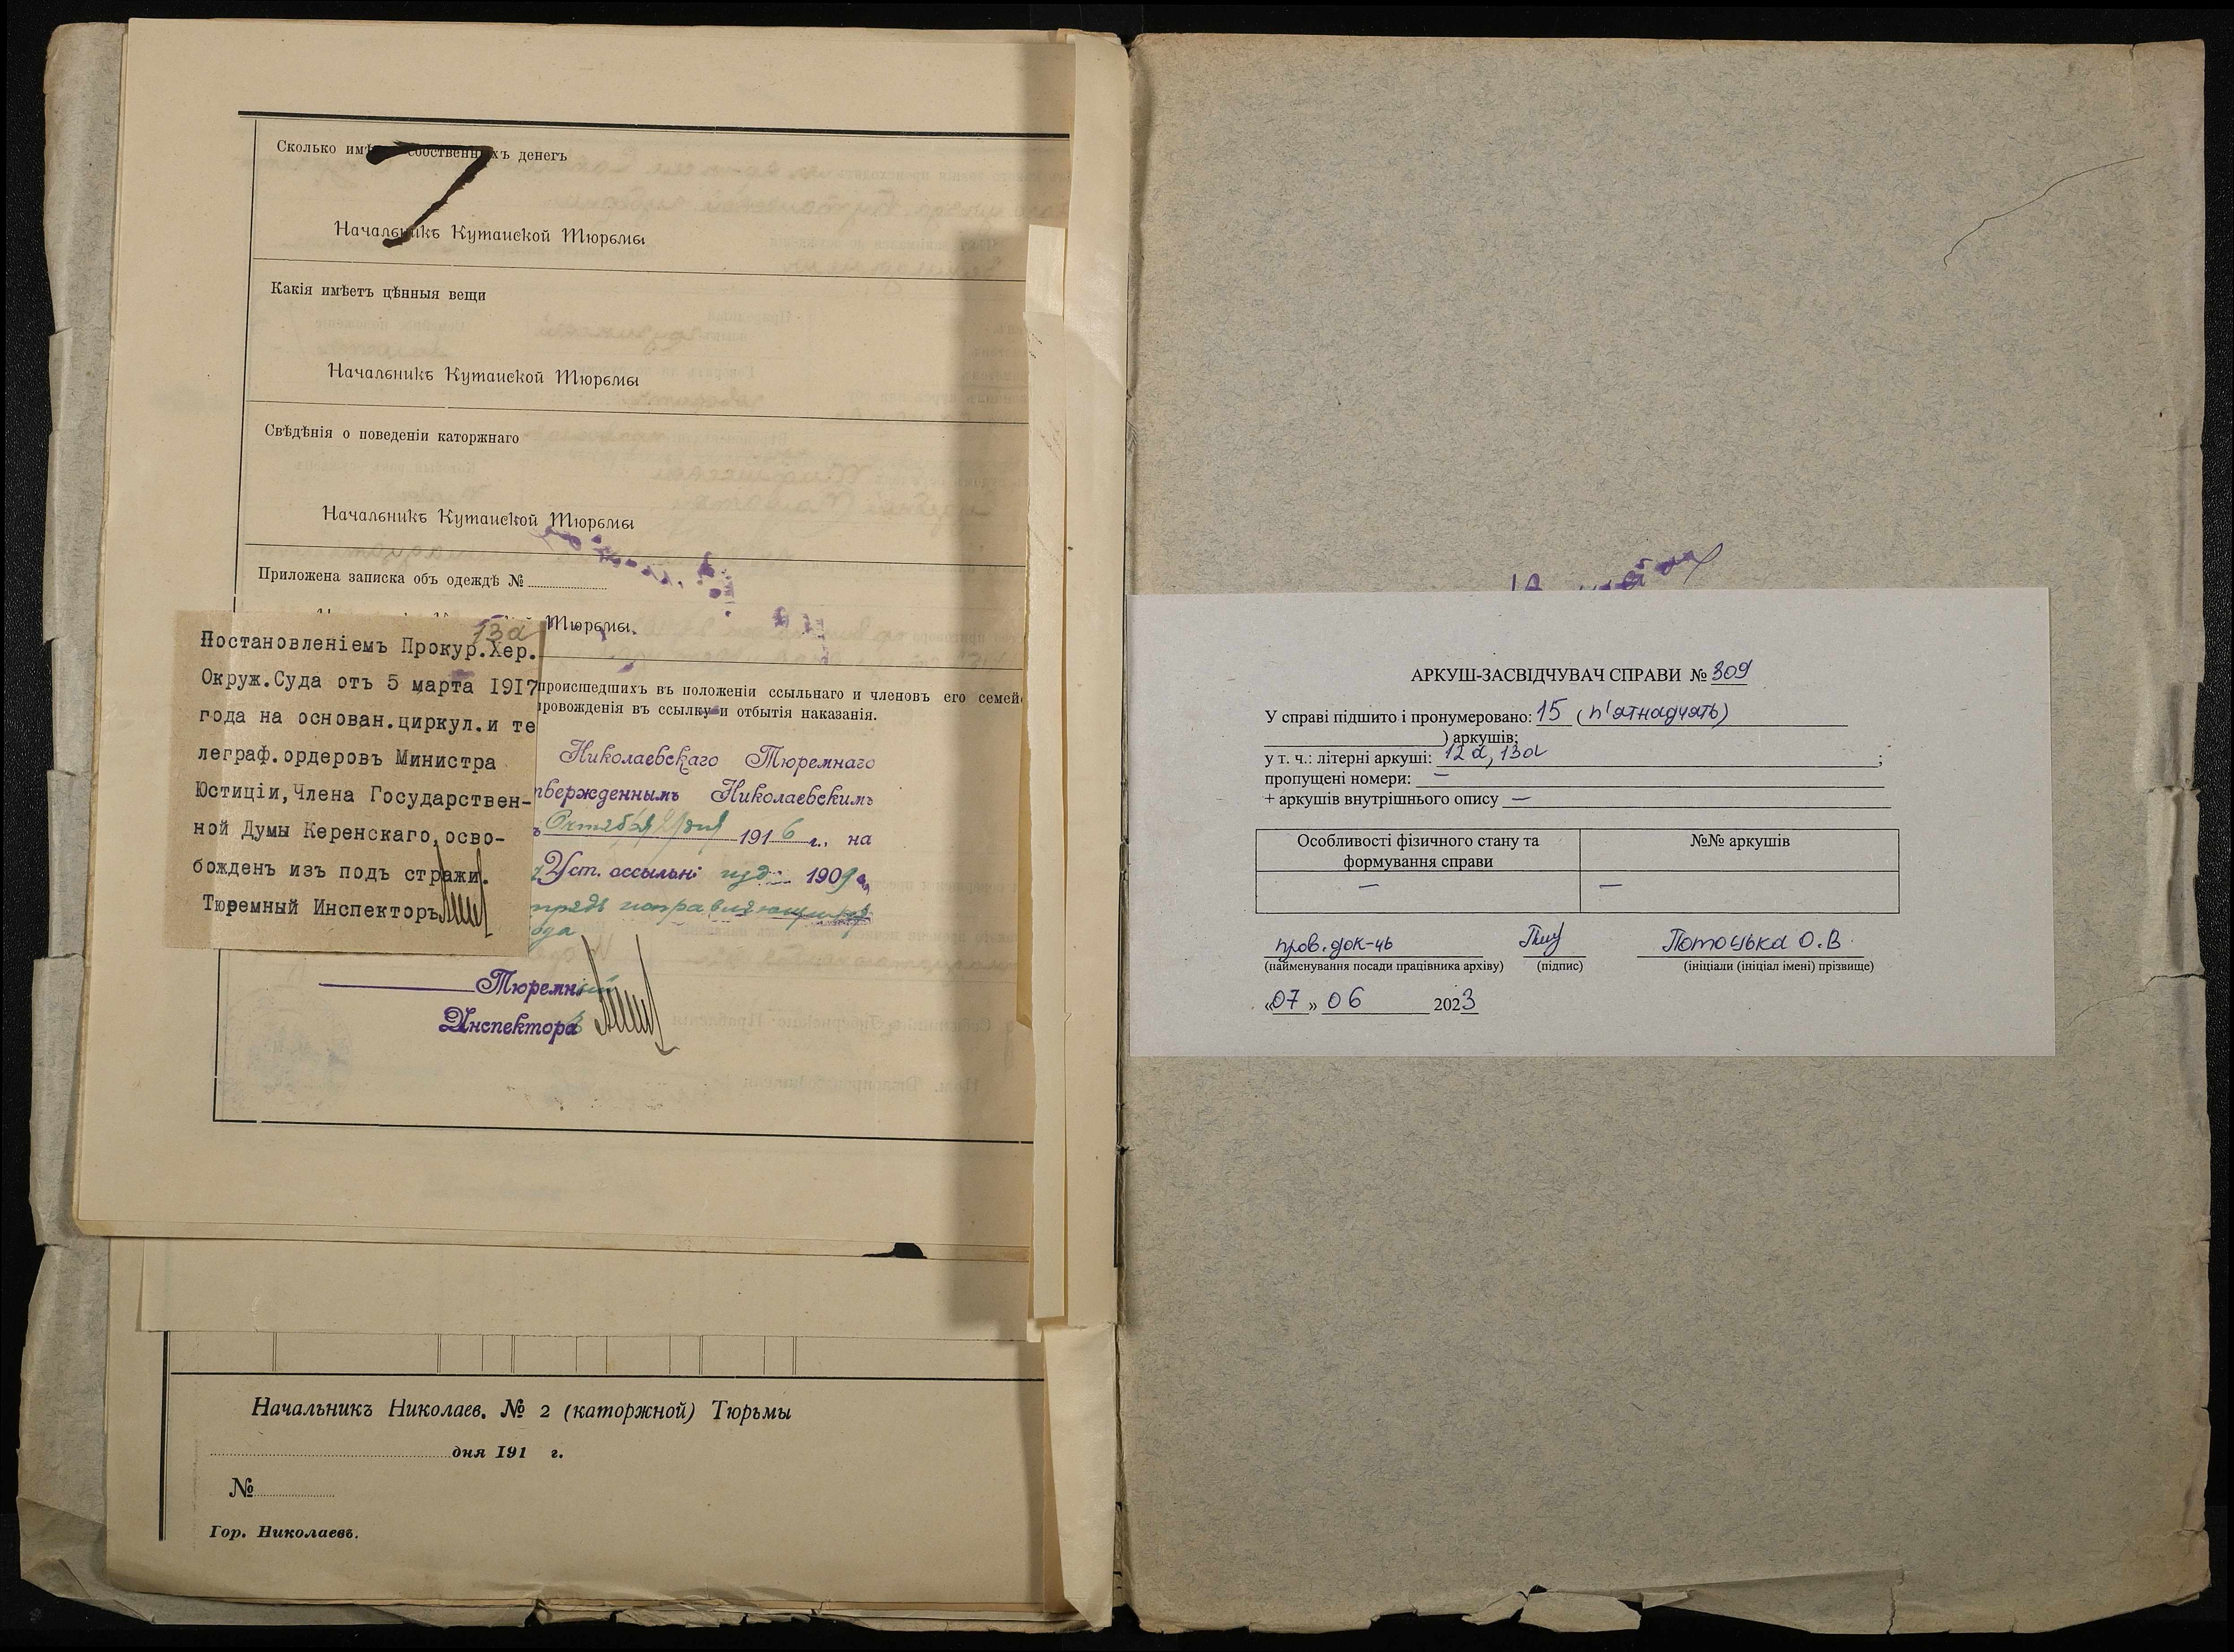 Сколько имѣ собственныхъ денегъ
Начальникъ Кутаиской Тюрьмы
Какія имѣетъ цѣнныя вещи
Начальникъ Кутаиской Тюрьмы
Свѣдѣнія о поведеніи каторжнаго
Начальникъ Кутаиской Тюрьмы
Приложена записка объ одеждѣ №
Тюрьмы
13а
Постановленіемъ Прокур.Хер.
Окруж.Суда отъ 5 марта 1917
года на основан.циркул.и те
леграф.ордеровъ Министра
Юстиціи,Члена Государствен-
ной Думы Керенскаго,осво-
божденъ изъ подъ стражи.
Тюремный Инспекторъ
происшедшихъ въ положеніи ссыльнаго и членовъ его семей
провожденія въ ссылку и отбытія наказанія.
Николаевскаго Тюремнаго
твержденнымъ Николаевскимъ
Октября 1916 г., на
Уст. ссыльн 1909
Тюремный
Инспектора
Начальникъ Николаев. № 2 (каторжной) Тюрьмы
дня 191 г.
№
Гор. Николаевъ.
АРКУШ-ЗАСВІДЧУВАЧ СПРАВИ № 309
У справі підшито і пронумеровано: 15 ( п'ятнадчять)
) аркушів;
у т. ч.: літерні аркуші: 12а, 13а ;
пропущені номери: —
+ аркушів внутрішнього опису —
Особливості фізичного стану та формування справи
№№ аркушів
—
—
пров. док-ч Потоцька О.В
(найменування посади працівника архіву) (підпис) (ініціали (ініціал імені) прізвище)
«07» 06 2023